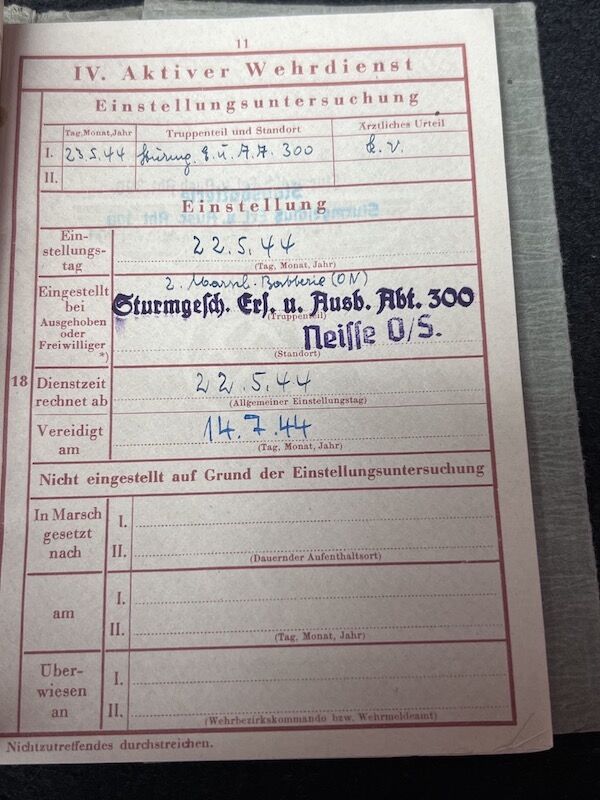 11
IV. Aktiver Wehrdienst
Einstellungsuntersuchung
Tag, Monat, Jahr Truppenteil und Standort Ärztliches Urteil
I. 23.5.44 E. u. A. A. 300 k. v.
II.
Einstellung
Ein-
stellungs-
tag
22.5.44
(Tag, Monat, Jahr)
Eingestellt
bei
Ausgehoben
oder
Freiwilliger
*)
2. (ON)
Sturmgesch. Ers. u. Ausb. Abt. 300
(Truppenteil)
Neisse O/S.
(Standort)
18 Dienstzeit
rechnet ab
22.5.44
(Allgemeiner Einstellungstag)
Vereidigt
am
14.7.44
(Tag, Monat, Jahr)
Nicht eingestellt auf Grund der Einstellungsuntersuchung
In Marsch
gesetzt
nach
I.
II.
(Dauernder Aufenthaltsort)
am
I.
II.
(Tag, Monat, Jahr)
Über-
wiesen
an
I.
II.
(Wehrbezirkskommando bzw. Wehrmeldeamt)
Nichtzutreffendes durchstreichen.